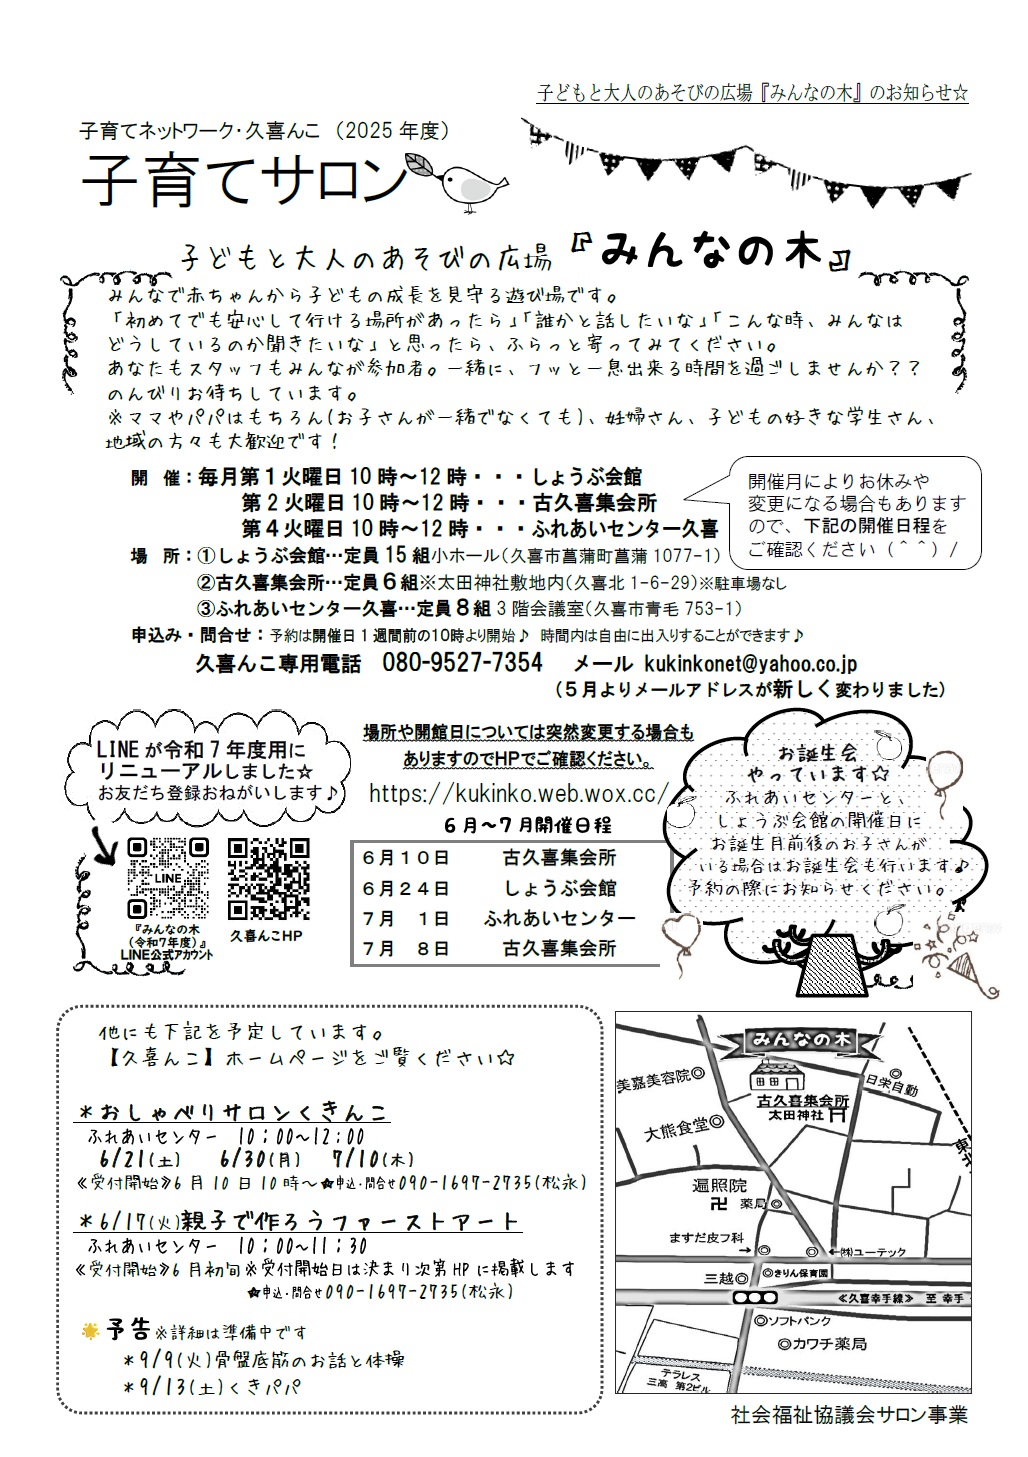 子どもと大人のあそびの広場『みんなの木』のお知らせ☆
子育てネットワーク・久喜んこ （2025 年度）
子育てサロン
子どもと大人のあそびの広場『みんなの木』
みんなで赤ちゃんから子どもの成長を見守る遊び場です。
「初めてでも安心して行ける場所があったら」「誰かと話したいな」「こんな時、みんなは
どうしているのか聞きたいな」と思ったら、ふらっと寄ってみてください。
あなたもスタッフもみんなが参加者。一緒に、フッと一息出来る時間を過ごしませんか？？
のんびりお待ちしています。
※ママやパパはもちろん(お子さんが一緒でなくても)、妊婦さん、子どもの好きな学生さん、
地域の方々も大歓迎です！
開 催：毎月第１火曜日 10 時～12 時・・・しょうぶ会館
第２火曜日 10 時～12 時・・・古久喜集会所
第４火曜日 10 時～12 時・・・ふれあいセンター久喜
開催月によりお休みや
変更になる場合もあります
ので、下記の開催日程を
ご確認ください（＾＾）/
場 所：①しょうぶ会館…定員 15 組小ホール（久喜市菖蒲町菖蒲 1077-1）
②古久喜集会所…定員６組※太田神社敷地内（久喜北 1-6-29）※駐車場なし
③ふれあいセンター久喜…定員８組 3 階会議室（久喜市青毛 753-1）
申込み・問合せ：予約は開催日 1 週間前の10時より開始♪ 時間内は自由に出入りすることができます♪
久喜んこ専用電話 080-9527-7354 メール kukinkonet@yahoo.co.jp
（５月よりメールアドレスが新しく変わりました）
LINE が令和 7 年度用に
リニューアルしました☆
お友だち登録おねがいします♪
LINE
『みんなの木
（令和7年度）』
LINE公式アカウント
久喜んこHP
場所や開館日については突然変更する場合も
ありますのでHPでご確認ください。
https://kukinko.web.wox.cc/
６月～７月開催日程
６月１０日 古久喜集会所
６月２４日 しょうぶ会館
７月 １日 ふれあいセンター
７月 ８日 古久喜集会所
お誕生会
やっています☆
ふれあいセンターと、
しょうぶ会館の開催日に
お誕生月前後のお子さんが
いる場合はお誕生会も行います♪
予約の際にお知らせください。
他にも下記を予定しています。
【久喜んこ】ホームページをご覧ください☆
＊おしゃべりサロンくきんこ
ふれあいセンター 10：00～12：00
6/21(土) 6/30(月) 7/10(木)
《受付開始》6 月 10 日 10 時～☆申込・問合せ090-1697-2735(松永)
＊6/17(火)親子で作ろうファーストアート
ふれあいセンター 10：00～11：30
《受付開始》6 月初旬※受付開始日は決まり次第 HP に掲載します
☆申込・問合せ090-1697-2735(松永)
予告※詳細は準備中です
＊9/9(火)骨盤底筋のお話と体操
＊9/13(土)くきパパ
みんなの木
美嘉美容院◎
日栄自動
古久喜集会所
太田神社
大熊食堂◎
東北
遍照院
卍 薬局◎
ますだ皮フ科
→◎
◎←㈱ユーテック
三越◎
◎きりん保育園
《久喜幸手線》 至 幸手
◎ソフトバンク
◎カワチ薬局
テラレス
三高 第2ビル
社会福祉協議会サロン事業